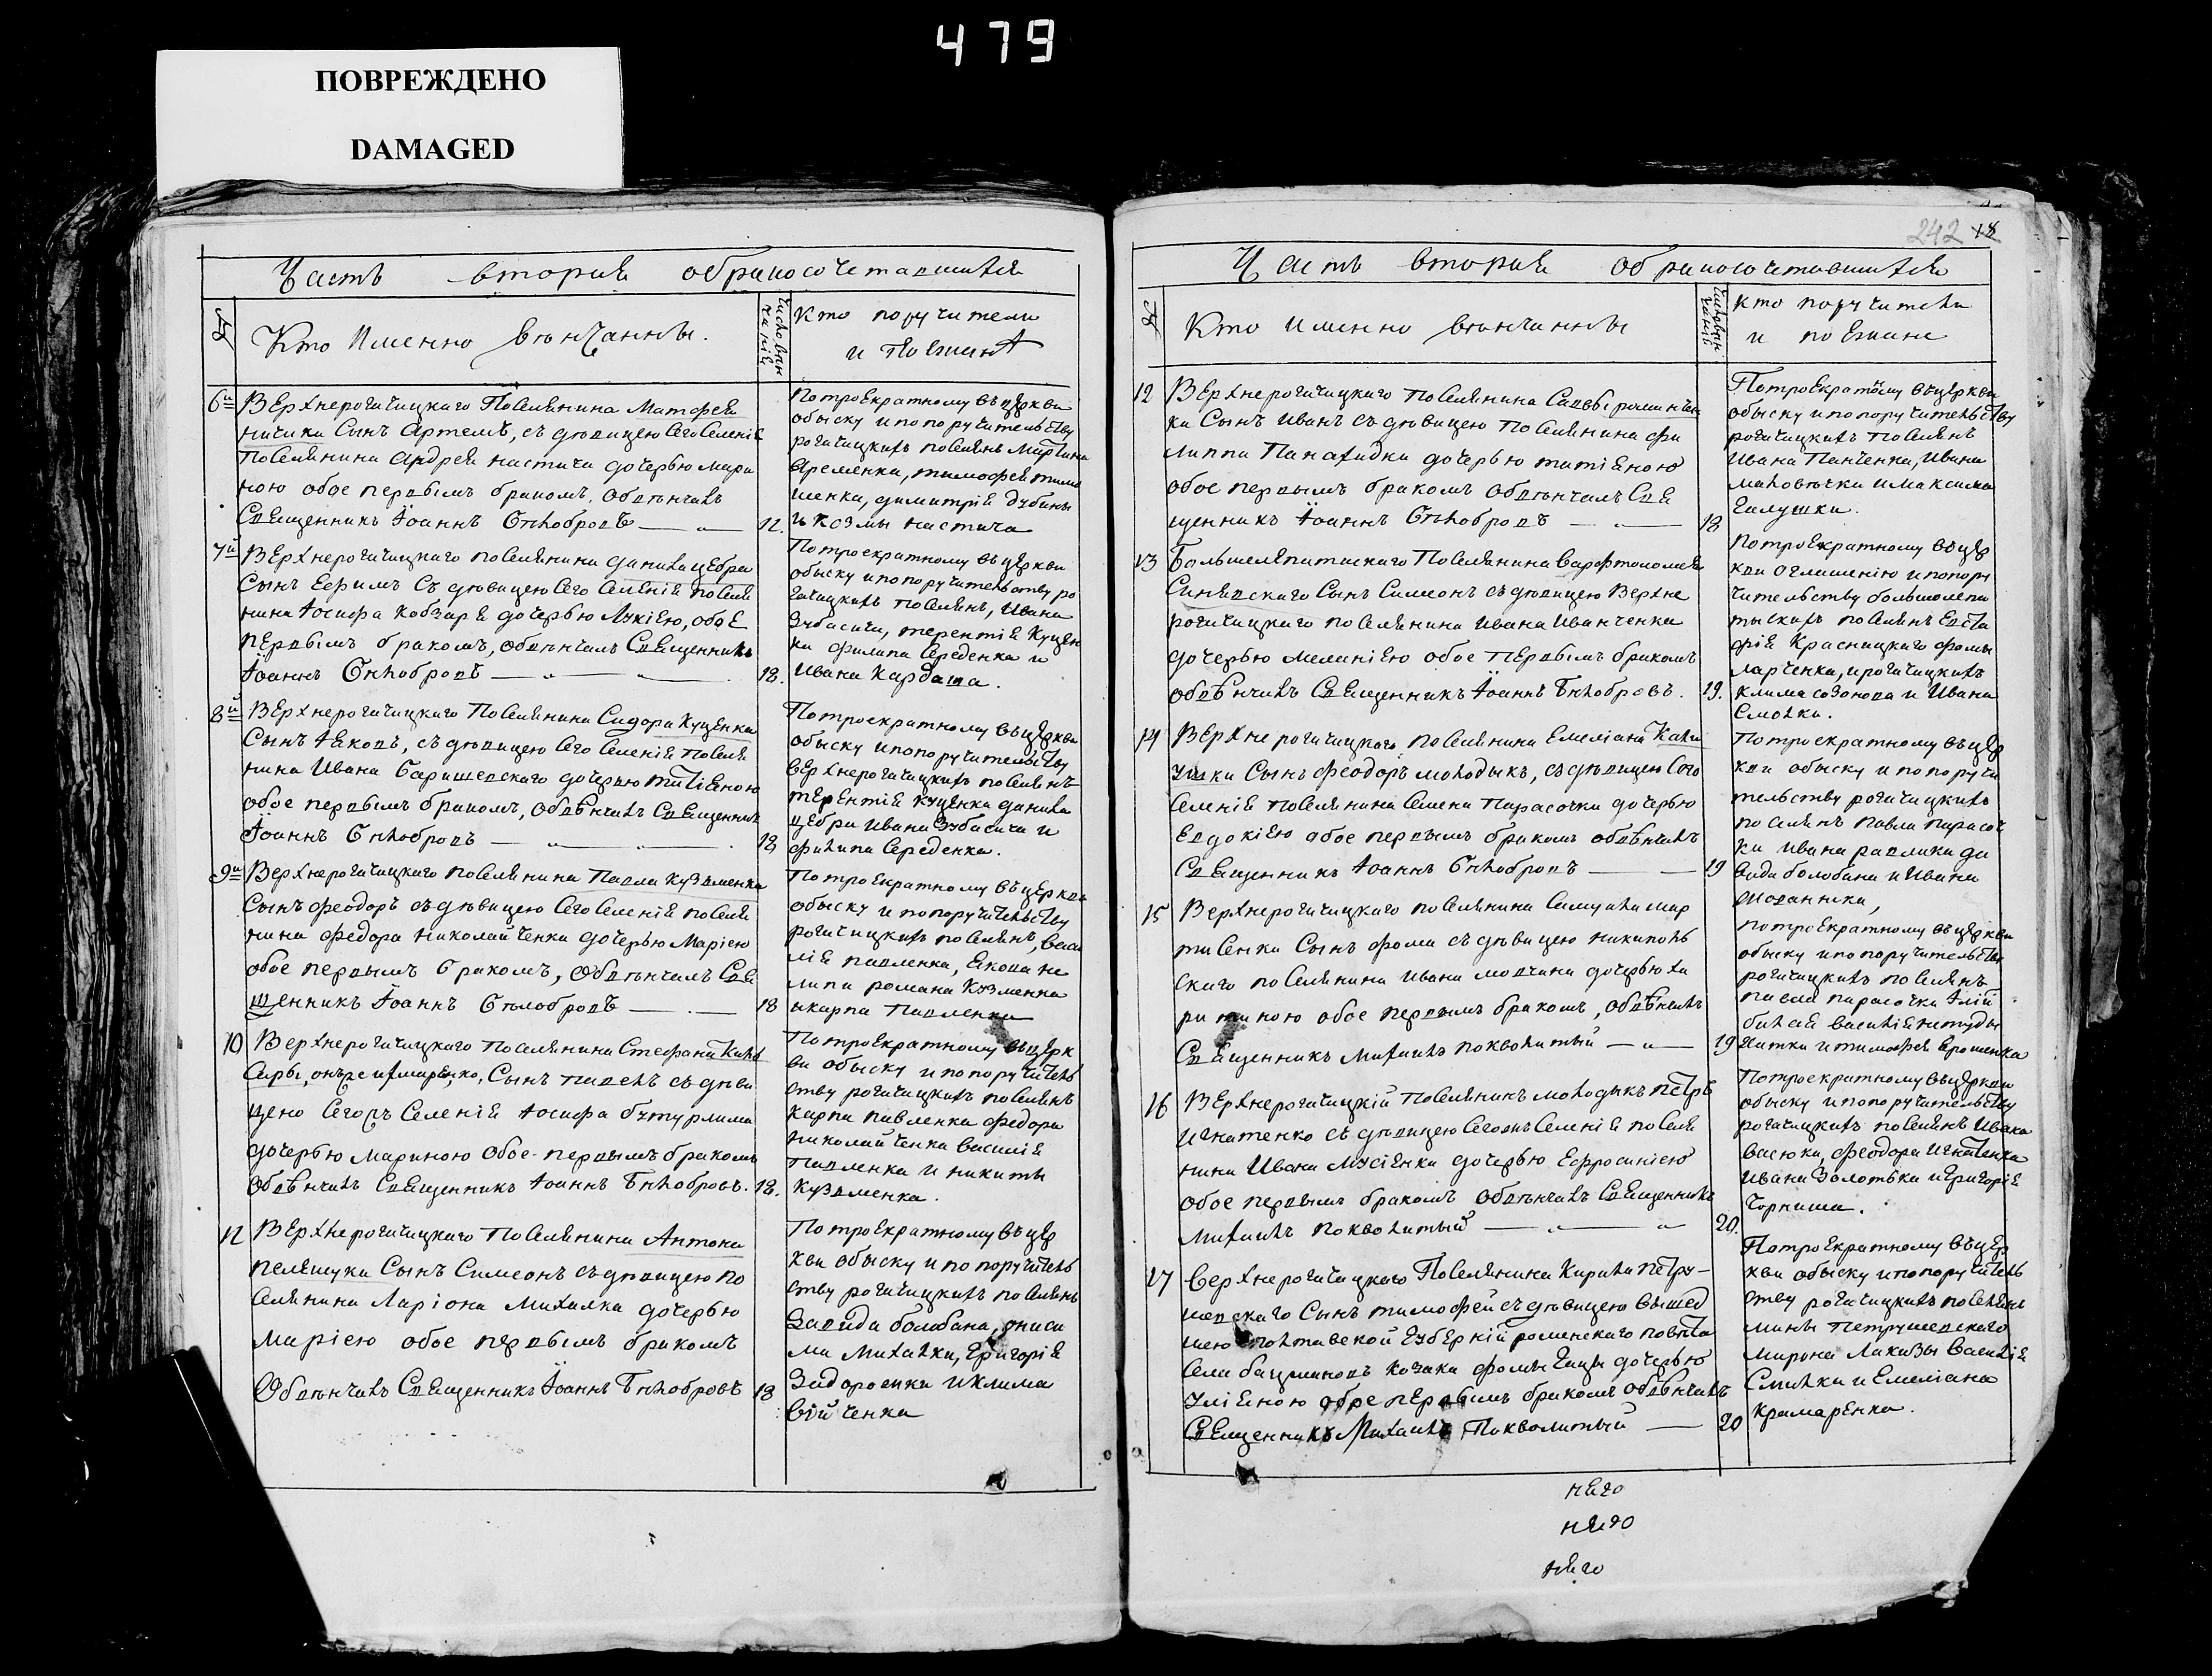 479
ПОВРЕЖДЕНО
DAMAGED
Часть вторая обракосочетавшихся
№
Кто Именно вѣнчанны.
Число вѣн
чанія
Кто поручители
и поезжанѣ
6й
Верхнерогачицкаго Поселянина Матфея
Сынъ Артемъ, съ дѣвицею Сего Селенія
Поселянина Андрея Настича дочерью Мари
ною обое первымъ бракомъ. Обвѣнчалъ
Священникъ Іоаннъ Бѣлобровъ
12.
Потроекратному въ церкви
обыску и попоручительству
рогачицкихъ поселянъ Мартина
Яременка, Тимофея Тимо
шенка, Димитрія Дубины
и Козмы Настича
7й
Верхнерогачицкаго поселянина Данила Цебра
Сынъ Ефимъ Съ дѣвицею Сего Селенія поселя
нина Іосифа Кобзаря дочерью Лукіею, обое
первымъ бракомъ, обвѣнчалъ Священникъ
Іоаннъ Бѣлобровъ
18.
Потроекратному въ церкви
обыску и попоручительству ро
гачицкихъ поселянъ, Ивана
Зубасича, Терентія Куцен
ка Филипа Середенка и
Ивана Кардаша.
8й
Верхнерогачицкаго Поселянина Сидора Куценка
Сынъ Іяковъ, съ дѣвицею Сего Селенія поселя
нина Ивана Баришевскаго дочерью Татіяною
обое первымъ бракомъ, обвѣнчалъ Священникъ
Іоаннъ Бѣлобровъ
18
Потроекратному въ церкви
обыску и попоручительству
верхнерогачицкихъ поселянъ
Терентія Куценка Данила
Цебри Ивана Зубасича и
Филипа Середенка.
9й
Верхнерогачицкаго поселянина Павла Кузьменка
Сынъ Феодоръ съ дѣвицею Сего Селенія поселя
нина Федора Николайченка дочерью Маріею
обое первымъ бракомъ, Обвѣнчалъ Свя
щенникъ Іоаннъ Бѣлобровъ
18
Потроекратному въ церкви
обыску и попоручительству
рогачицкихъ поселянъ, Васи
лія Павленка, Якова Не
липа Романа Кузменка
и Карпа Павленка
10
Верхнерогачицкаго поселянина Стефана
Сынъ Павелъ съ дѣви
цею Сегожъ Селенія Іосифа Бутурлима
дочерью Мариною Обое первымъ бракомъ
Обвѣнчалъ Священникъ Іоаннъ Бѣлобровъ.
18.
Потроекратному въ церк
ви обыску и попоручитель
ству рогачицкихъ поселянъ
Карпа Павленка Федора
Николайченка Василія
Павленка и Никиты
Кузьменка.
11
Верхнерогачицкаго Поселянина Антона
Пелящука Сынъ Симеонъ съ дѣвицею по
селянина Ларіона Михалка дочерью
Маріею обое первымъ бракомъ
Обвѣнчалъ Священникъ Іоаннъ Бѣлобровъ
18
Потроекратному въ цер
кви обыску и попоручитель
ству рогачицкихъ поселянъ
Давида Болобана, Ониси
ма Михалки, Григорія
Задорожка и Клима
Войченка
242 18
Часть вторая обракосочетавшихся
№
Кто Именно вѣнчанны
Число вѣн
чанія
Кто поручители
и поезжане
12
Верхнерогачицкаго поселянина Саввы
ка Сынъ Иванъ съ дѣвицею поселянина Фи
липпа Панахидки дочерью Татіяною
обое первымъ бракомъ Обвѣнчалъ Свя
щенникъ Іоаннъ Бѣлобровъ
18
Потроекратному въ церкви
обыску и попоручительству
рогачицкихъ поселянъ
Ивана Панченка, Ивана
Маловѣчки и Максима
Галушки.
13
Большелепатискаго Поселянина Варфтоломея
Синявскаго Сынъ Симеонъ съ дѣвицею Верхне
рогачицкаго поселянина Ивана Иванченка
дочерью Меланіею обое первымъ бракомъ
обвѣнчалъ Священникъ Іоаннъ Бѣлобровъ.
19.
Потроекратному въ цер
кви оглашенію и попору
чительству большолепа
тыскихъ поселянъ Евста
фія Красницкаго Фомы
Ларченка, и рогачицкихъ
Клима Созонова и Ивана
Смолки.
14
Верхнерогачицкаго поселянина Емеліана
Сынъ Феодоръ молодыкъ, съ дѣвицею Сего
Селенія поселянина Семена Парасочки дочерью
Евдокіею обое первымъ бракомъ обвѣнчалъ
Священникъ Іоаннъ Бѣлобровъ
19
Потроекратному въ цер
кви обыску и попоручи
тельству рогачицкихъ
поселянъ Павла Парасоч
ки Ивана Равлика Да
вида Болобана и Ивана
15
Верхнерогачицкаго поселянина Самуила Мар
тиенка Сынъ Фома съ дѣвицею Никиполь
скаго поселянина Ивана Мовчана дочерью Ха
ритиною обое первымъ бракомъ, обвѣнчалъ
Священникъ Михаилъ Поквалитый
19
Потроекратному въ церкви
обыску и попоручительству
рогачицкихъ поселянъ
Павла Парасочки Іліи
Билая Василія
и Тимофея Ярошенка
16
Верхнерогачицкій Поселянинъ молодыкъ Петръ
Игнатенко съ дѣвицею Сегожъ Селенія поселя
нина Ивана Мусіенка дочерью Ефросиніею
обое первымъ бракомъ Обвѣнчалъ Священникъ
Михаилъ Поквалитый
20.
Потроекратному въ церкви
обыску и попоручительству
рогачицкихъ поселянъ Ивана
Васюка, Феодора Игнатенка
Ивана Золотька и Григорія
Чорниша.
17
Верхнерогачицкаго Поселянина Кирила Петру-
шевскаго Сынъ Тимофей съ дѣвицею вышед
шею Полтавской Губерній роменскаго повѣта
Села Бацманова козака Фомы Гацы дочерью
Уліяною обое первымъ бракомъ обвѣнчалъ
Священникъ Михаилъ Поквалитый
20
Потроекратному въ цер
кви обыску и попоручитель
ству рогачицкихъ поселянъ
Мины Петрушевскаго
Мирона Лакизы Василія
Смилки и Емеліана
Крамаренка.